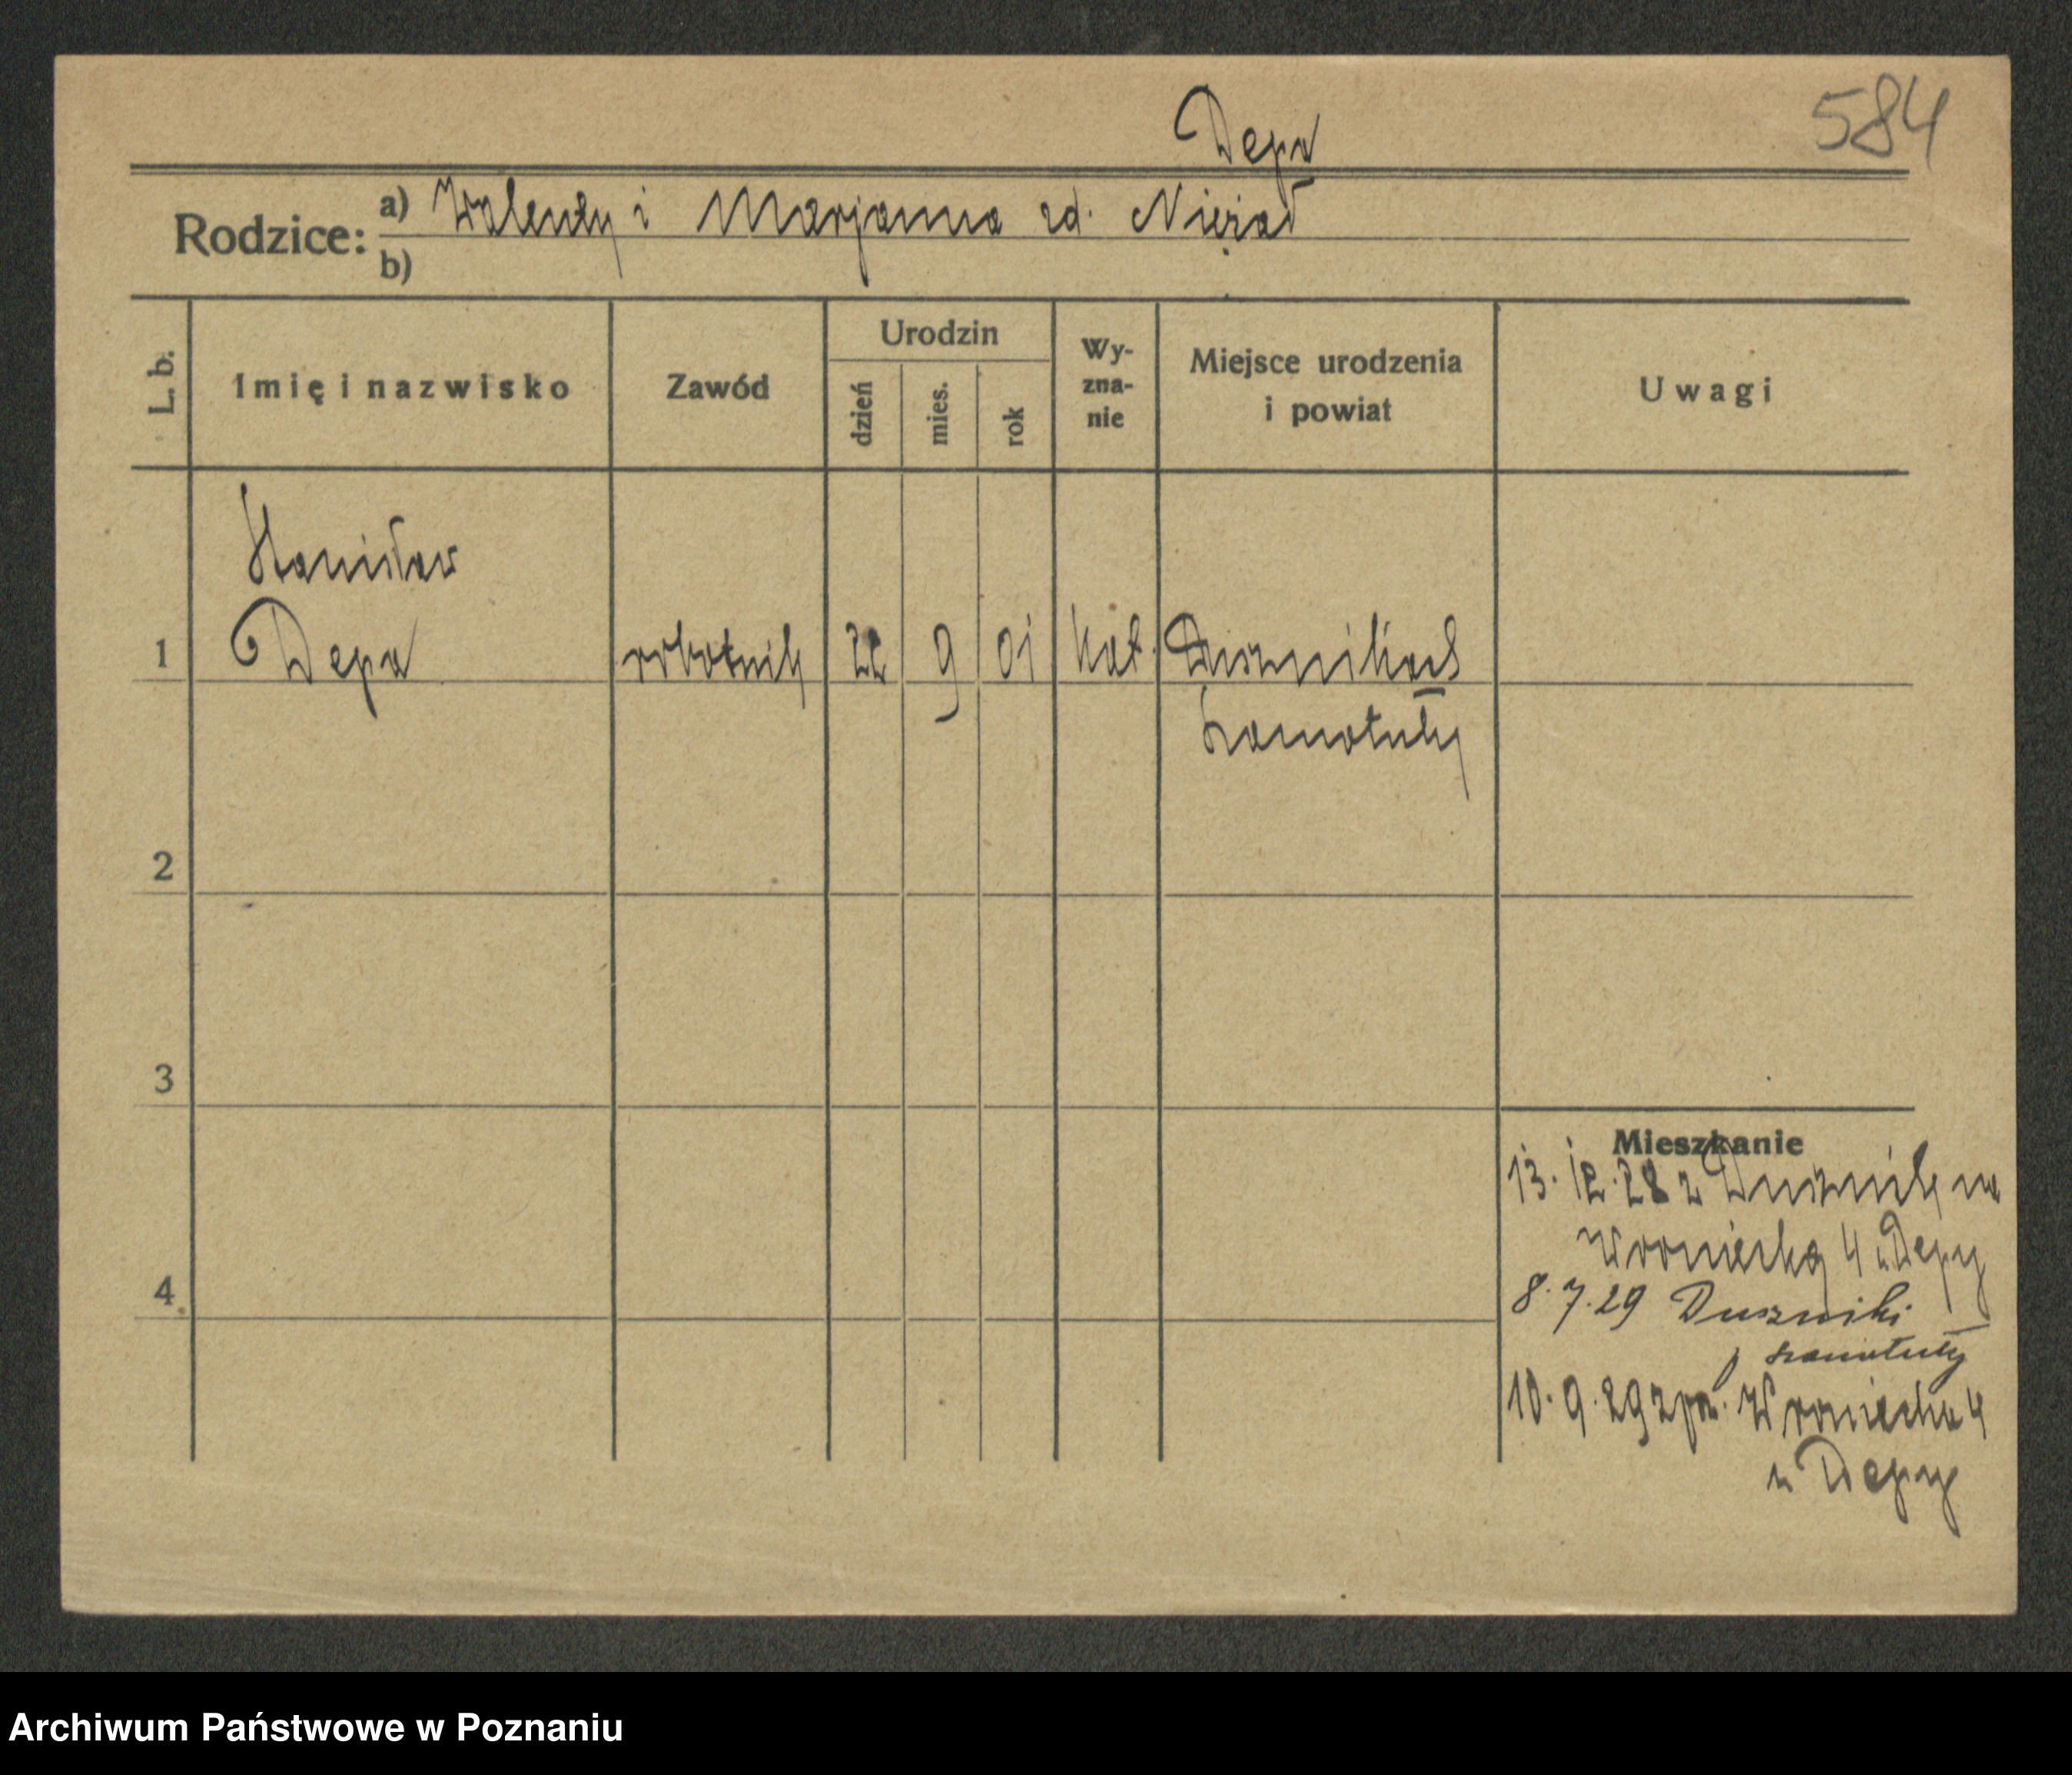 Depa
584
Rodzice: a) Walenty i Marjanna zd. Nieżał
b)
L. b.
Imię i nazwisko
Zawód
Urodzin
dzień
mies.
rok
Wy-
zna-
nie
Miejsce urodzenia
i powiat
Uwagi
Stanisław
1 Depa robotnik 22 9 01 kat. Dusznikach
Szamotuły
2
3
4
Mieszkanie
13. 12. 28 z Dusznik na
Wroniecką 4 u Depy
8. 7. 29 Duszniki
Szamotuły
10. 9. 29 zpow. Wroniecka 4
u Depy
Archiwum Państwowe w Poznaniu